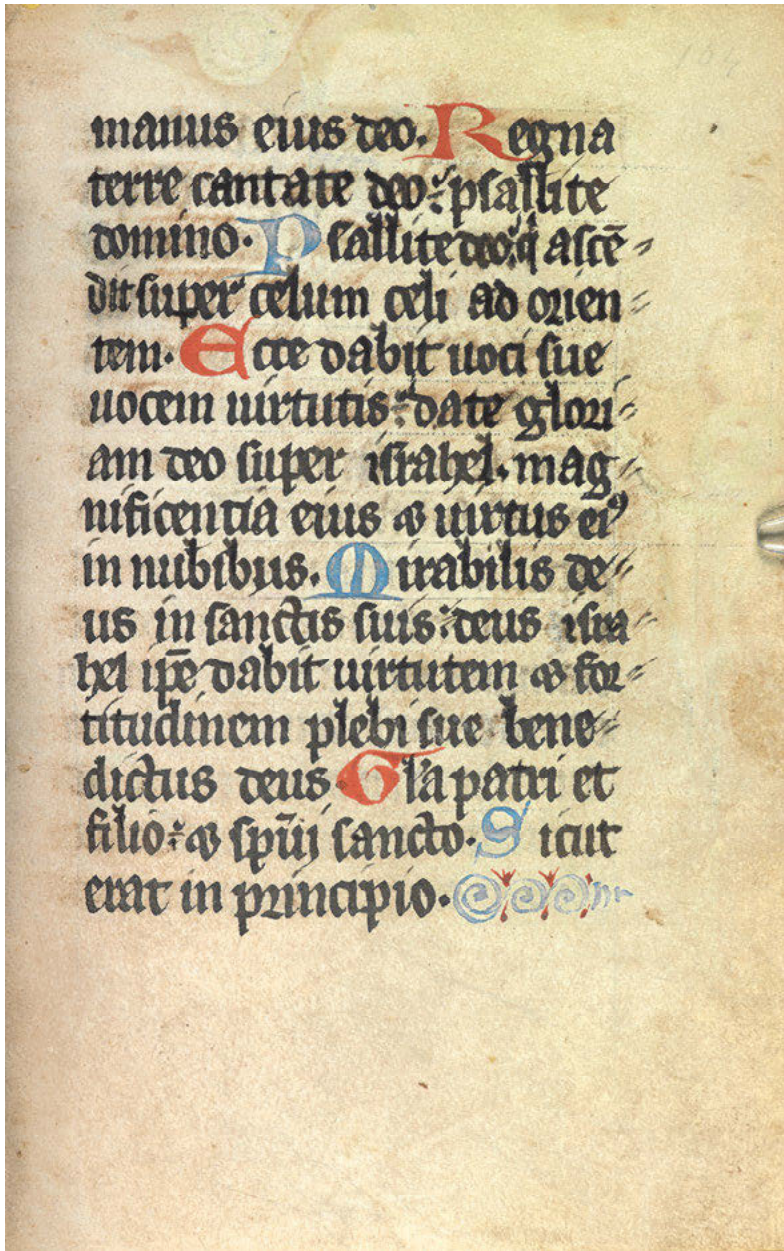 manus eius deo. Regna
terre cantate deo: psallite
domino. Psallite deo: qi ascē
dit super celum celi ad orien
tem. Ecce dabit uoci sue
uocem uirtutis: date glori
am deo super israhel. mag
nificentia eius ⁊ uirtus eiꝰ
in nubibus. Mirabilis de
us in sanctis suis: deus isra
hel ip̄e dabit uirtutem ⁊ for
titudinem plebi sue bene
dictus deus Gl'a patri et
filio: ⁊ sp̄ui sancto. Sicut
erat in principio.